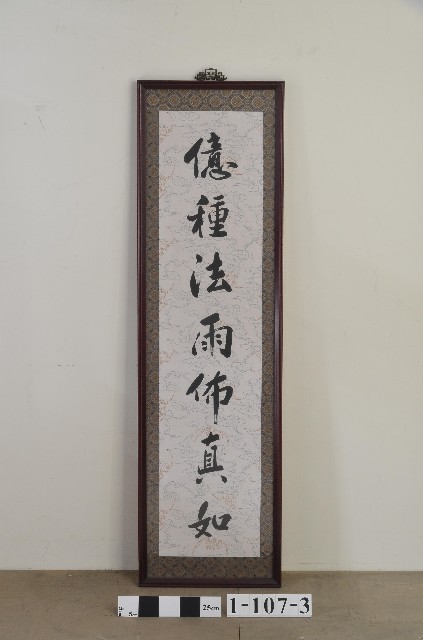 億種法雨佈真如
25cm
1-107-3